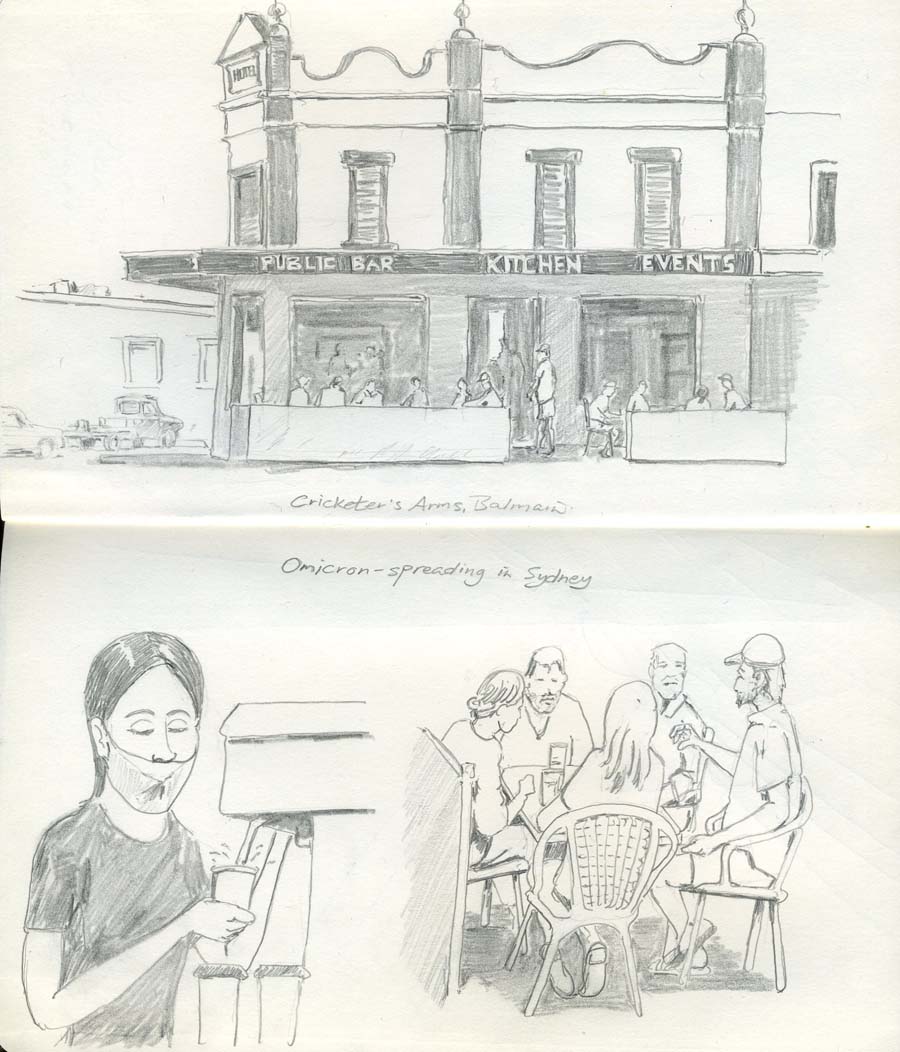 HOTEL
PUBLIC BAR KITCHEN EVENTS
Cricketer's Arms, Balmain.
Omicron-spreading in Sydney